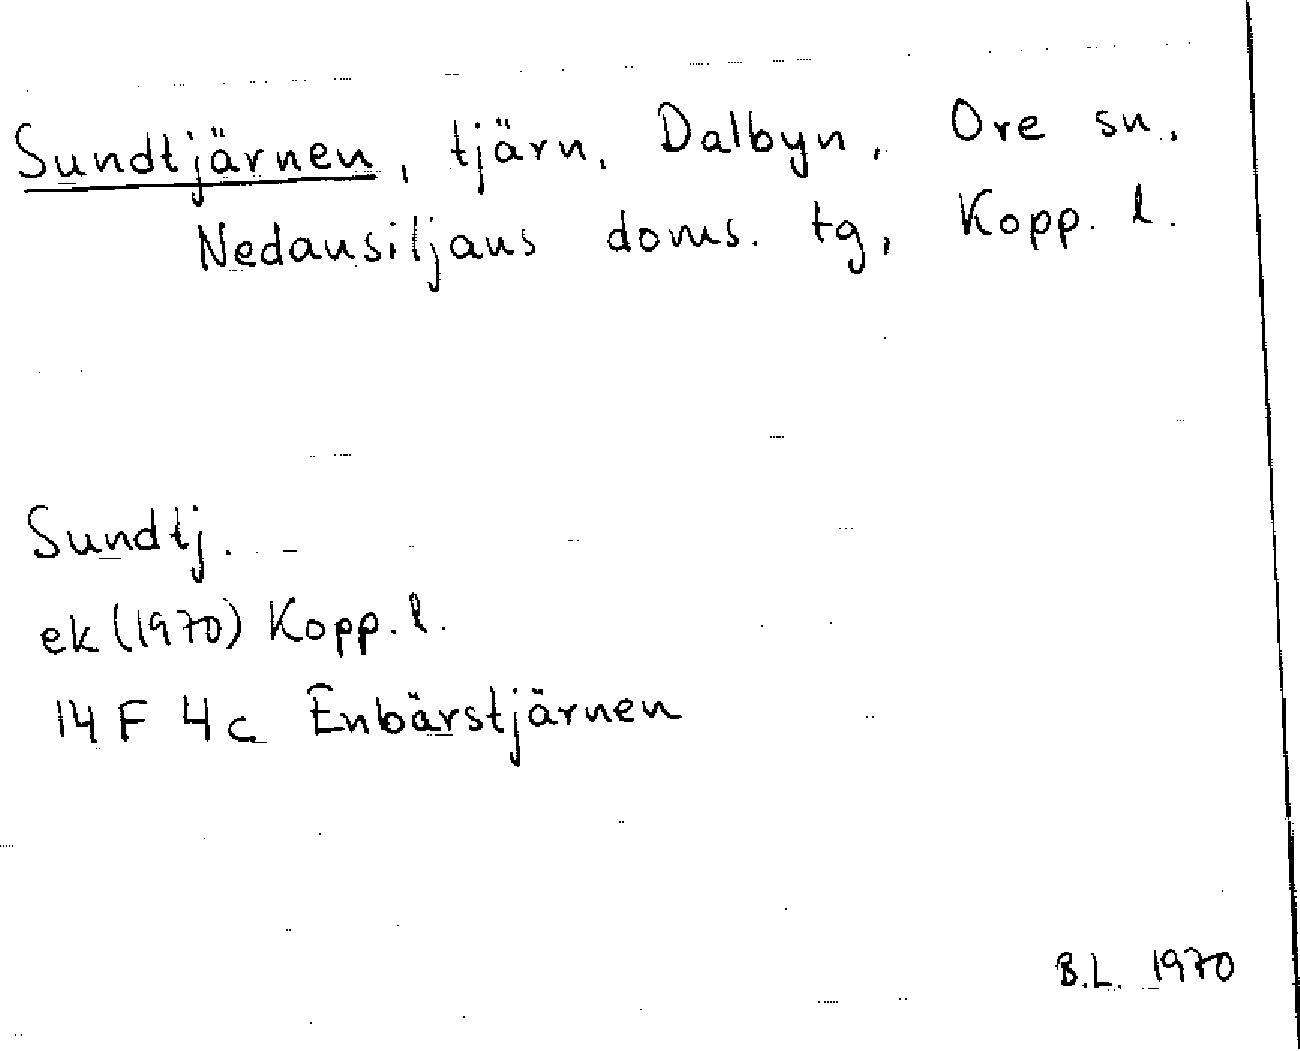 Sundtjärnen, tjärn, Dalbyn, Ore sn.,
Nedansiljans doms. tg, Kopp. l.
Sundtj. –
ek (1970) Kopp. l.
14 F 4c Enbärstjärnen
B.L. 1970